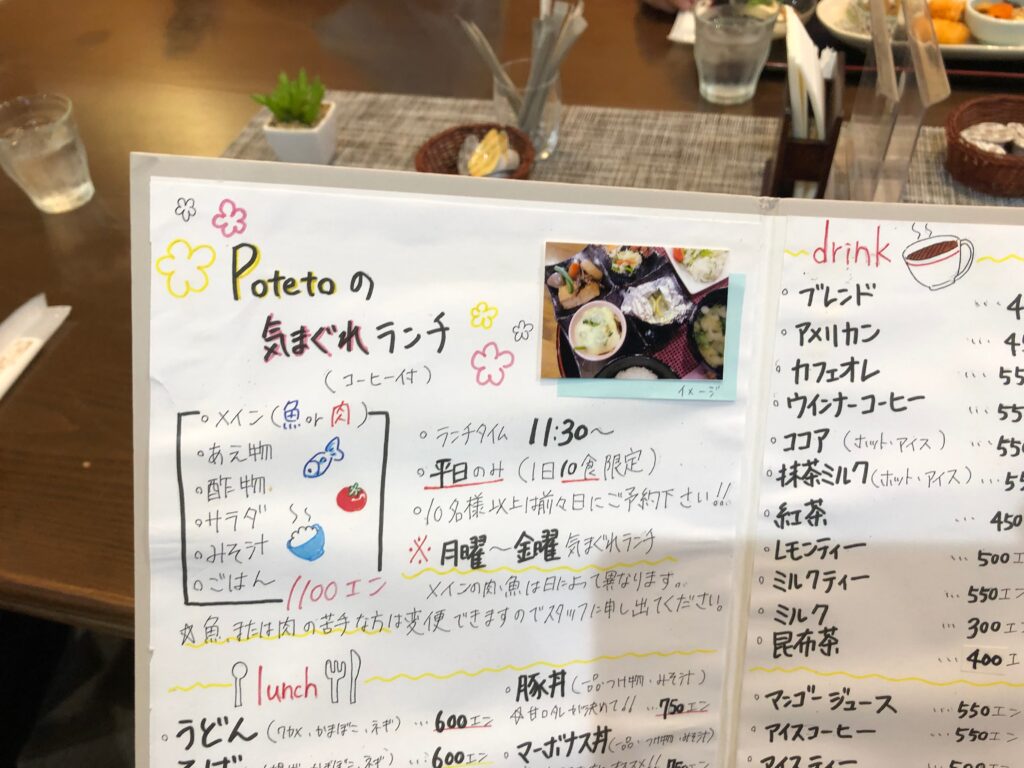 Potetoの
気まぐれランチ
(コーヒー付)
イメージ
○メイン(魚or肉)
○あえ物
○酢物
○サラダ
○みそ汁
○ごはん
1100エン
○ランチタイム 11:30〜
○平日のみ(1日10食限定)
○10名様以上は前々日にご予約下さい!!
※月曜〜金曜 気まぐれランチ
メインの肉・魚は日によって異なります。
☆魚、または肉の苦手な方は変便できますのでスタッフに申し出てください。
lunch
うどん(ワカメ、かまぼこ、ネギ)…600エン
…600エン
○豚丼(一品・つけ物・みそ汁)
甘口タレが決めて!! …750エン
○マーボナス丼(一品、つけ物・みそ汁)
drink
○ブレンド
○アメリカン
○カフェオレ
○ウインナーコーヒー
○ココア(ホット・アイス)
○抹茶ミルク(ホット・アイス)
○紅茶 …450
○レモンティー …500エ
○ミルクティー …550エ
○ミルク …300エ
○昆布茶 …400エ
○マンゴージュース …550エ
○アイスコーヒー …550エ
○アイスティー